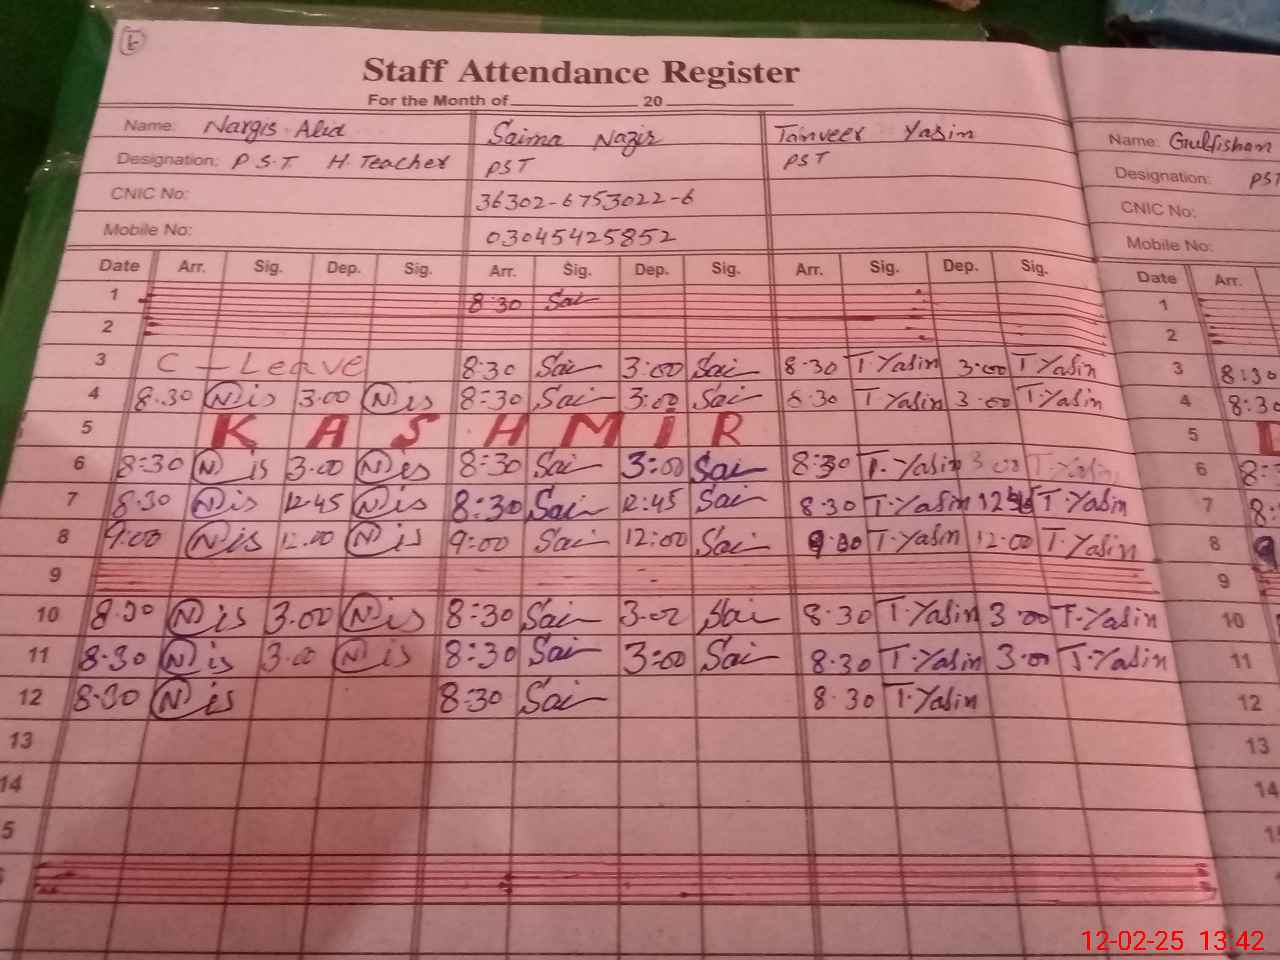 Staff Attendance Register
For the Month of 20
Name: Nargis Abid Saima Nazir Tanveer Yasin
Designation: P.S.T H.Teacher PST PST
CNIC No: 36302-6753022-6
Mobile No: 03045425852
Date Arr. Sig. Dep. Sig. Arr. Sig. Dep. Sig. Arr. Sig. Dep. Sig.
1 8:30 Sai
2
3 C-Leave 8:30 Sai 3:00 Sai 8.30 T.Yasin 3.00 T.Yasin
4 8.30 N is 3.00 N is 8:30 Sai 3:00 Sai 8.30 T.Yasin 3.00 T.Yasin
5 KASHMiR
6 8:30 N is 3.00 N is 8:30 Sai 3:00 Sai 8:30 T.Yasin 3.00 T.Yasin
7 8.30 N is 12.45 N is 8:30 Sai 12:45 Sai 8.30 T.Yasin 12 45 T.Yasin
8 9:00 N is 12.00 N is 9:00 Sai 12:00 Sai 9.00 T.Yasin 12.00 T.Yasin
9
10 8.30 N is 3.00 N is 8:30 Sai 3:00 Sai 8.30 T.Yasin 3.00 T.Yasin
11 8.30 N is 3.00 N is 8:30 Sai 3:00 Sai 8.30 T.Yasin 3.00 T.Yasin
12 8.30 N is 8:30 Sai 8.30 T.Yasin
13
14
5
Name: Gulfishan
Designation: PST
CNIC No:
Mobile No:
Date Arr.
1
2
3 8:30
4 8:30
5
6 8:
7 8:
8 9
9
10
11
12
13
14
12-02-25 13:42